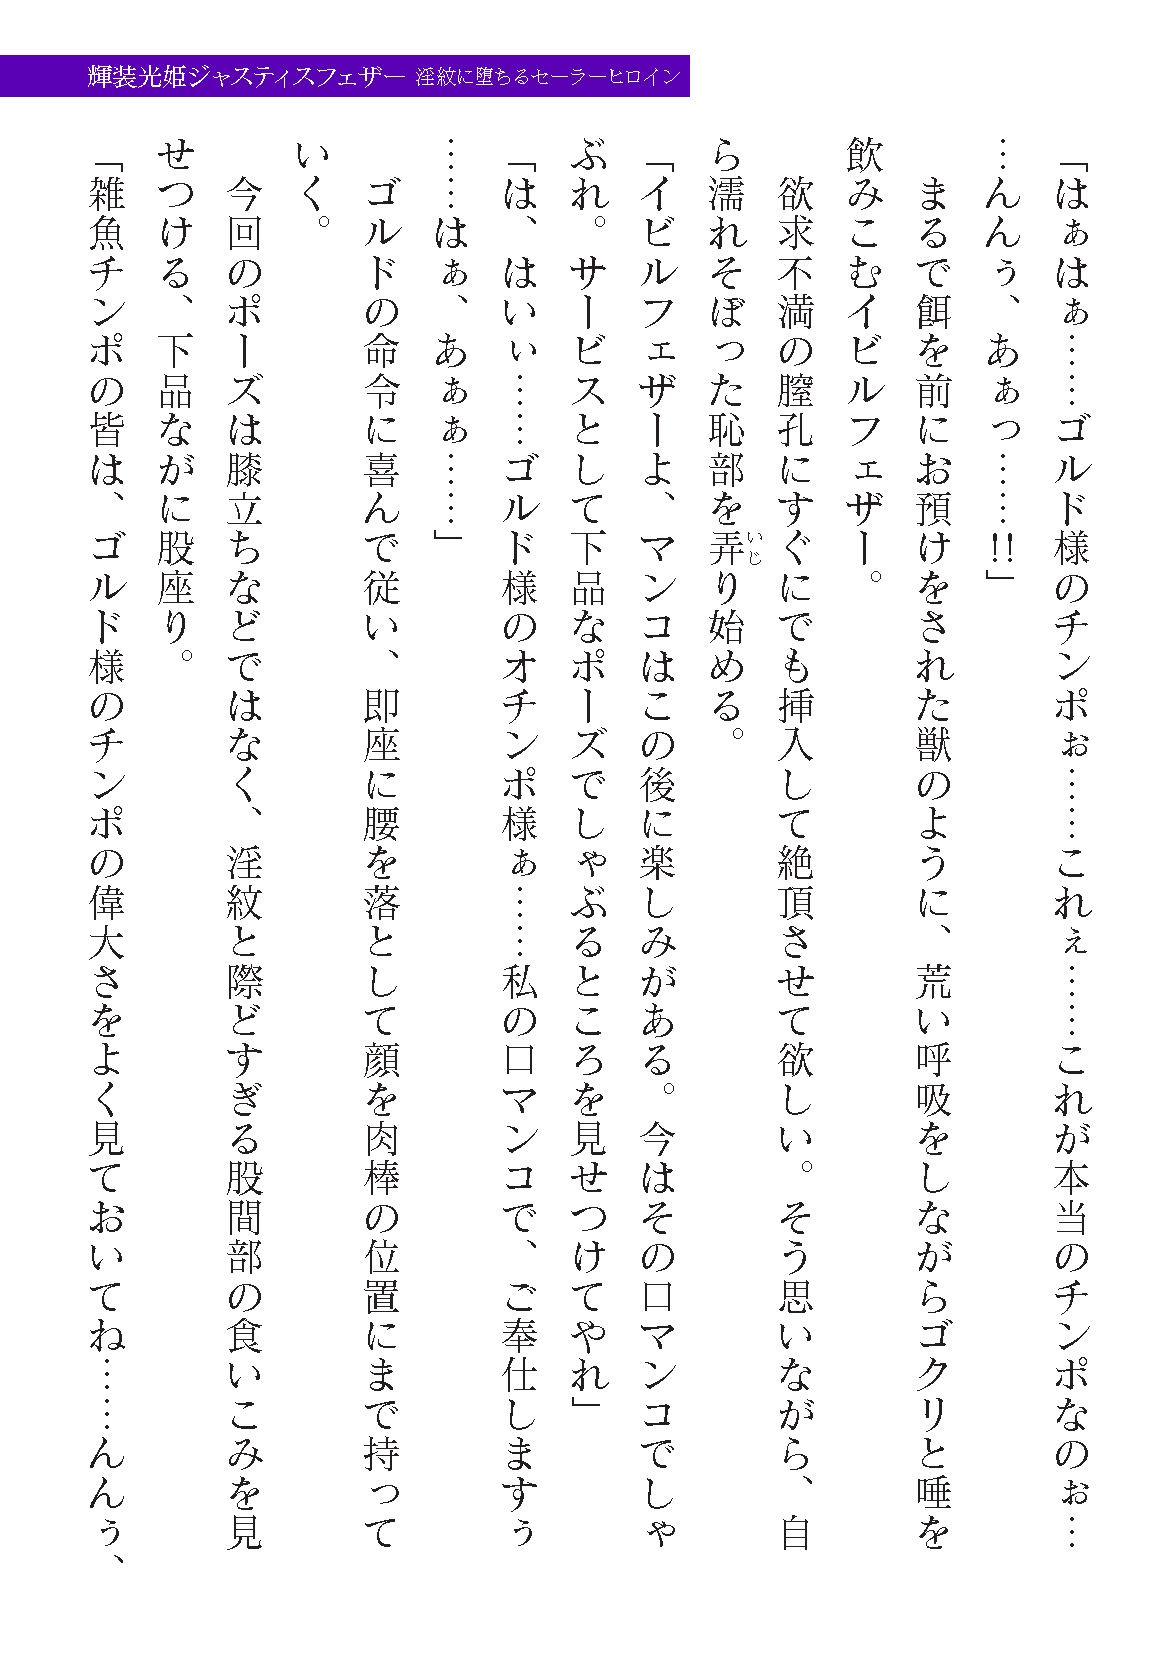 輝装光姫ジャスティスフェザー 淫紋に堕ちるセーラーヒロイン
「はぁはぁ……ゴルド様のチンポぉ……これぇ……これが本当のチンポなのぉ…
…んんぅ、あぁっ……!!」
まるで餌を前にお預けをされた獣のように、荒い呼吸をしながらゴクリと唾を
飲みこむイビルフェザー。
欲求不満の膣孔にすぐにでも挿入して絶頂させて欲しい。そう思いながら、自
ら濡れそぼった恥部を弄り始める。
いじ
「イビルフェザーよ、マンコはこの後に楽しみがある。今はその口マンコでしゃ
ぶれ。サービスとして下品なポーズでしゃぶるところを見せつけてやれ」
「は、はいぃ……ゴルド様のオチンポ様ぁ……私の口マンコで、ご奉仕しますぅ
……はぁ、あぁぁ……」
ゴルドの命令に喜んで従い、即座に腰を落として顔を肉棒の位置にまで持って
いく。
今回のポーズは膝立ちなどではなく、淫紋と際どすぎる股間部の食いこみを見
せつける、下品ながに股座り。
「雑魚チンポの皆は、ゴルド様のチンポの偉大さをよく見ておいてね……んんぅ、